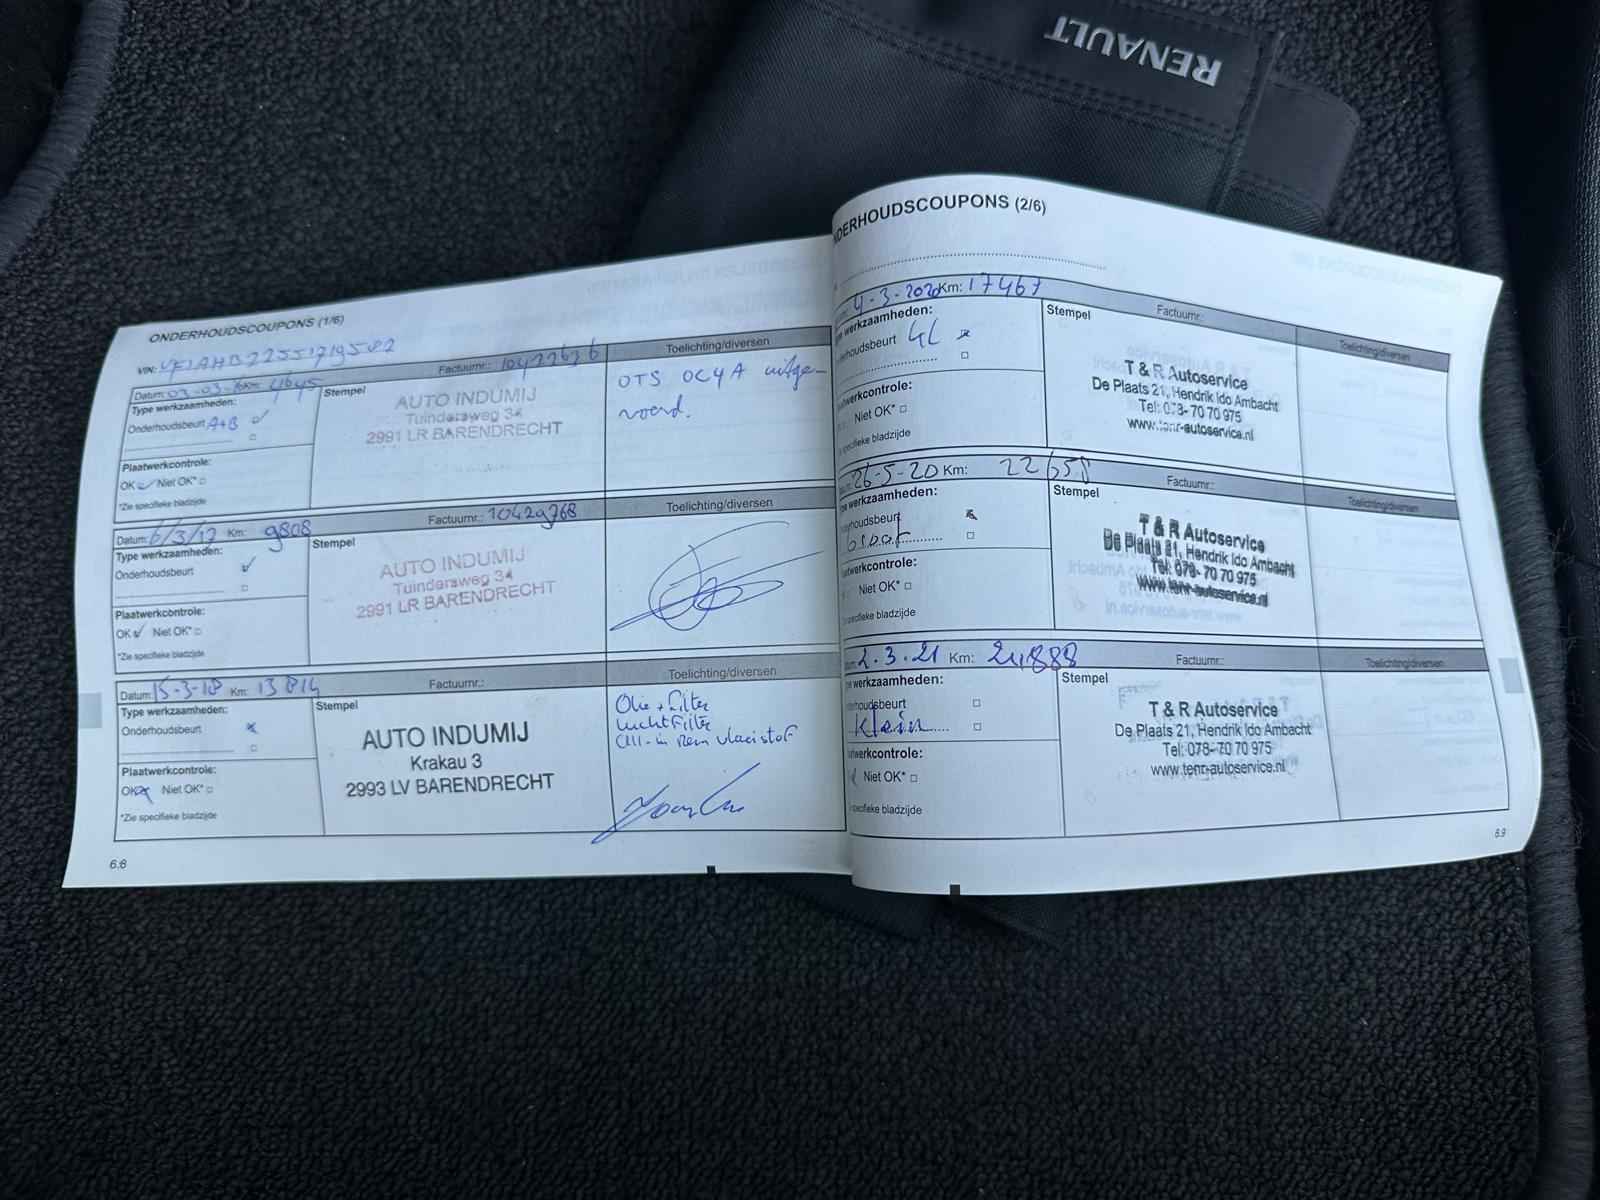 RENAULT
ONDERHOUDSCOUPONS (1/6)
VIN: VF1AHB22551719582
Datum: 03-03-16 Km: 4645
Factuurnr.: 10422626
Toelichting/diversen
Type werkzaamheden:
Onderhoudsbeurt A+B
Stempel
AUTO INDUMIJ
Tuindersweg 34
2991 LR BARENDRECHT
OTS OC4A uitge-
voerd.
Plaatwerkcontrole:
OK Niet OK*
*Zie specifieke bladzijde
Datum: 6/3/17 Km: 9808
Factuurnr.: 10429768
Toelichting/diversen
Type werkzaamheden:
Onderhoudsbeurt
Stempel
AUTO INDUMIJ
Tuindersweg 34
2991 LR BARENDRECHT
Plaatwerkcontrole:
OK Niet OK*
*Zie specifieke bladzijde
Datum: 15-3-18 Km: 13814
Factuurnr.:
Toelichting/diversen
Type werkzaamheden:
Onderhoudsbeurt
Stempel
AUTO INDUMIJ
Krakau 3
2993 LV BARENDRECHT
Olie + Filter
luchtfilter
remvloeistof
Plaatwerkcontrole:
OK Niet OK*
*Zie specifieke bladzijde
6.8
NDERHOUDSCOUPONS (2/6)
4-3-2020 Km: 17467
Factuurnr.:
Toelichting/diversen
pe werkzaamheden:
derhoudsbeurt
Stempel
T & R Autoservice
De Plaats 21, Hendrik Ido Ambacht
Tel: 078- 70 70 975
www.tenr-autoservice.nl
aatwerkcontrole:
Niet OK*
specifieke bladzijde
26-5-20 Km: 22658
Factuurnr.:
Toelichting/diversen
pe werkzaamheden:
derhoudsbeurt
Groot
Stempel
T & R Autoservice
De Plaats 21, Hendrik Ido Ambacht
Tel: 078- 70 70 975
www.tenr-autoservice.nl
aatwerkcontrole:
Niet OK*
specifieke bladzijde
2.3.21 Km: 24888
Factuurnr.:
Toelichting/diversen
pe werkzaamheden:
derhoudsbeurt
Klein
Stempel
T & R Autoservice
De Plaats 21, Hendrik Ido Ambacht
Tel: 078- 70 70 975
www.tenr-autoservice.nl
aatwerkcontrole:
Niet OK*
specifieke bladzijde
6.9